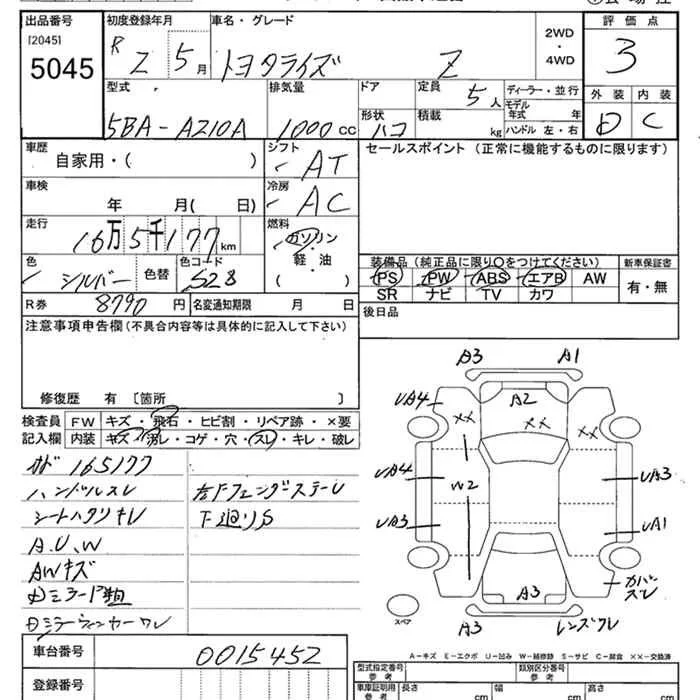 出品番号
[2045]
5045
初度登録年月
R 2 5月
車名・グレード
トヨタライズ Z
2WD
・
4WD
評価点
3
外装 内装
D C
型式
5BA-A210A
排気量
1000cc
ドア
形状
ハコ
定員
5人
積載
kg
ディーラー・並行
モデル
年式 年
ハンドル 左・右
車歴
自家用・( )
シフト
AT
セールスポイント (正常に機能するものに限ります)
車検
年 月( 日)
冷房
AC
走行
16万5千177km
燃料
ガソリン
・
軽・油
( )
色
シルバー
色替
色コード
S28
装備品(純正品に限り○をつけてください)
PS PW ABS エアB AW
SR ナビ TV カワ
新車保証書
有・無
R券
8790円
名変通知期限 月 日
後日品
注意事項申告欄(不具合内容等は具体的に記入して下さい)
修復歴 有〔箇所 〕
検査員
記入欄
FW キズ・飛石・ヒビ割・リペア跡・×要
内装 キズ・汚レ・コゲ・穴・スレ・キレ・破レ
165177
ハンドルスレ
シートハクリキレ
A.U.W
AWキズ
左Fフェンダーステーレ
下廻りS
A3 A1
A2
UA4
XX XX XX
UA4
W2
UA3
UA3
UA1
カバースレ
A3
A3
レンズワレ
スペア
A-キズ E-エクボ U-凹み W-補修跡 S-サビ C-腐食 ××-交換済
車台番号
0015452
登録番号
型式指定番号
参考
類別区分番号
参考
車庫証明用
参考
長さ cm
幅 cm
高さ cm